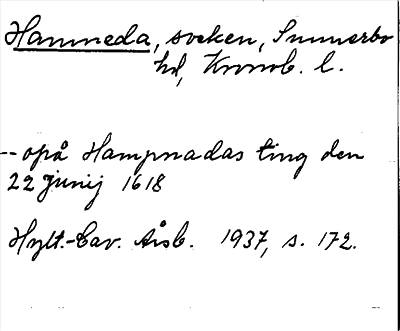 Hamneda, socken, Sunnerbo
hd, Kronob. l.
-- opå Hampnadas ting den
22 Junij 1618
Hylt.-Cav. Årsb. 1937, s. 172.